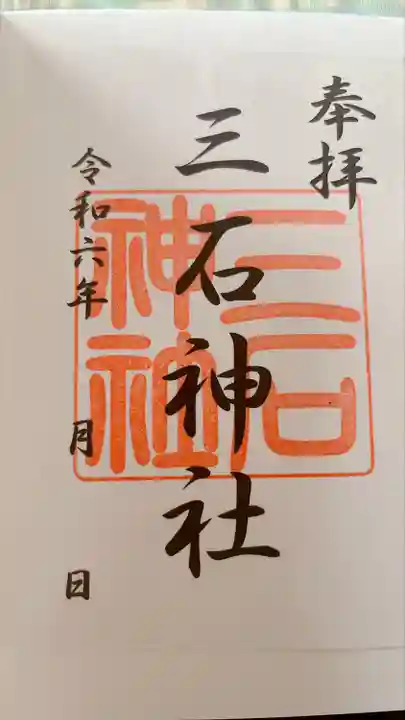 奉拝
三石神社
三石
神社
令和六年 月 日